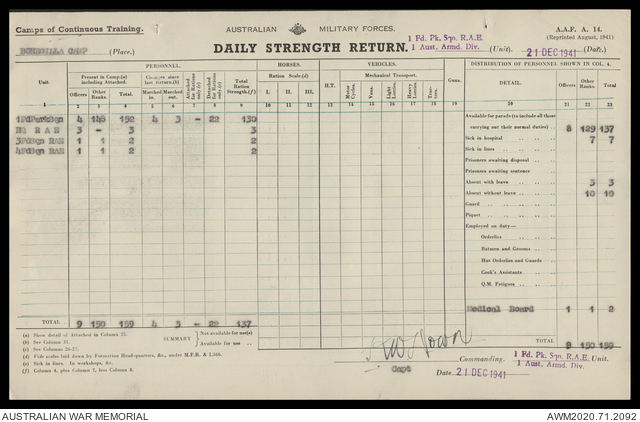 Camps of Continuous Training.
AUSTRALIAN MILITARY FORCES.
A.A.F. A. 14.
(Reprinted August, 1941)
BONEGILLA CAMP (Place.)
DAILY STRENGTH RETURN.
1 Fd. Pk. Sqn. R.A.E.
1 Aust. Armd. Div.
(Unit).
21 DEC 1941
(Date).
PERSONNEL.
HORSES.
VEHICLES.
DISTRIBUTION OF PERSONNEL SHOWN IN COL. 4.
Unit.
Present in Camp.(a) including Attached.
Changes since last return.(b)
Attached for Rations only.(c)
Detached for Rations only.(c)
Total Ration Strength.(f)
Ration Scale.(d)
Mechanical Transport.
Guns.
DETAIL.
Officers
Other Ranks.
Total.
Officers.
Other Ranks.
Total.
Marched in.
Marched out.
I. II. III.
H.T.
Motor Cycles.
Vans.
Light Lorries.
Heavy Lorries.
Tractors.
1 2 3 4 5 6 7 8 9 10 11 12 13 14 15 16 17 18 19 20 21 22 23
1FdParkSqn 4 146 152 4 3 - 22 130
HQ RAE 3 - 3 3
3FdSqn RAE 1 1 2 2
4FdSqn RAE 1 1 2 2
Available for parade (to include all those
carrying out their normal duties) .. 8 129 137
Sick in hospital .. 7 7
Sick in lines ..
Prisoners awaiting disposal ..
Prisoners awaiting sentence
Absent with leave .. 3 3
Absent without leave .. 10 10
Guard ..
Piquet ..
Employed on duty—
Orderlies ..
Batmen and Grooms ..
Hut Orderlies and Guards ..
Cook's Assistants ..
Q.M. Fatigues ..
Medical Board 1 1 2
TOTAL 9 150 159 4 3 - 22 137
TOTAL .. 9 150 159
(a) Show detail of Attached in Column 25.
(b) See Column 31.
(c) See Columns 26-27.
(d) Vide scales laid down by Formation Head-quarters, &c., under M.F.R. & I.566.
(e) Sick in lines. In workshops, &c.
(f) Column 4, plus Column 7, less Column 8.
SUMMARY
Not available for use(e)
Available for use ..
Capt
Commanding.
1 Fd. Pk. Sqn. R.A.E.
1 Aust. Armd. Div.
Unit.
Date 21 DEC 1941
AUSTRALIAN WAR MEMORIAL
AWM2020.71.2092